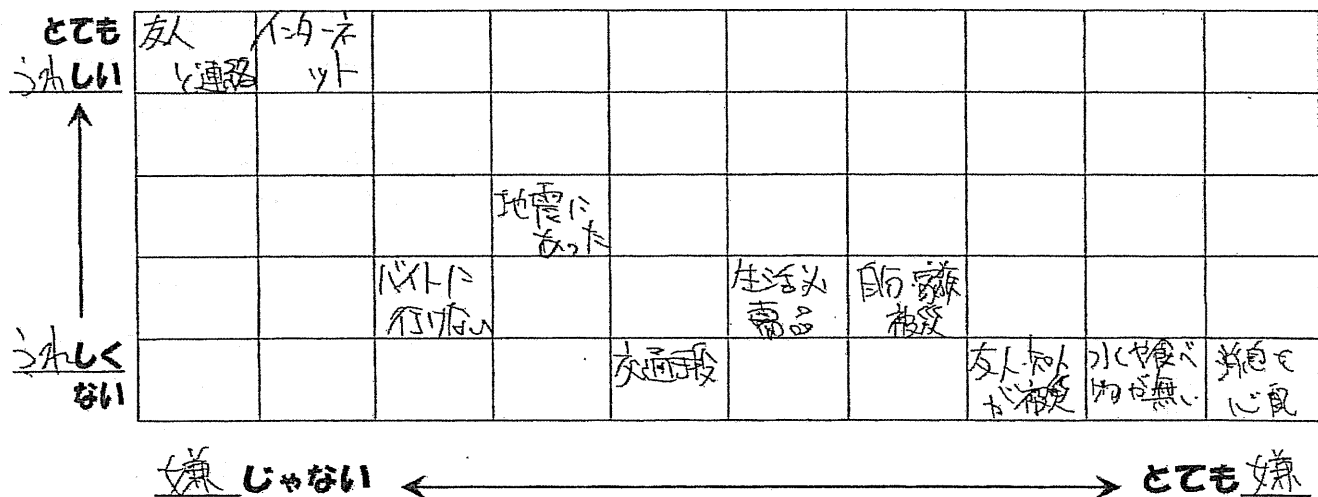 とても
うれしい
友人
と連絡
インターネ
ット
地震に
あった
バイトに
行けない
生活必
需品
自分・家族
被災
うれしく
ない
交通手段
友人・知人
が被災
水や食べ
物が無い
消息を
心配
嫌じゃない
とても嫌